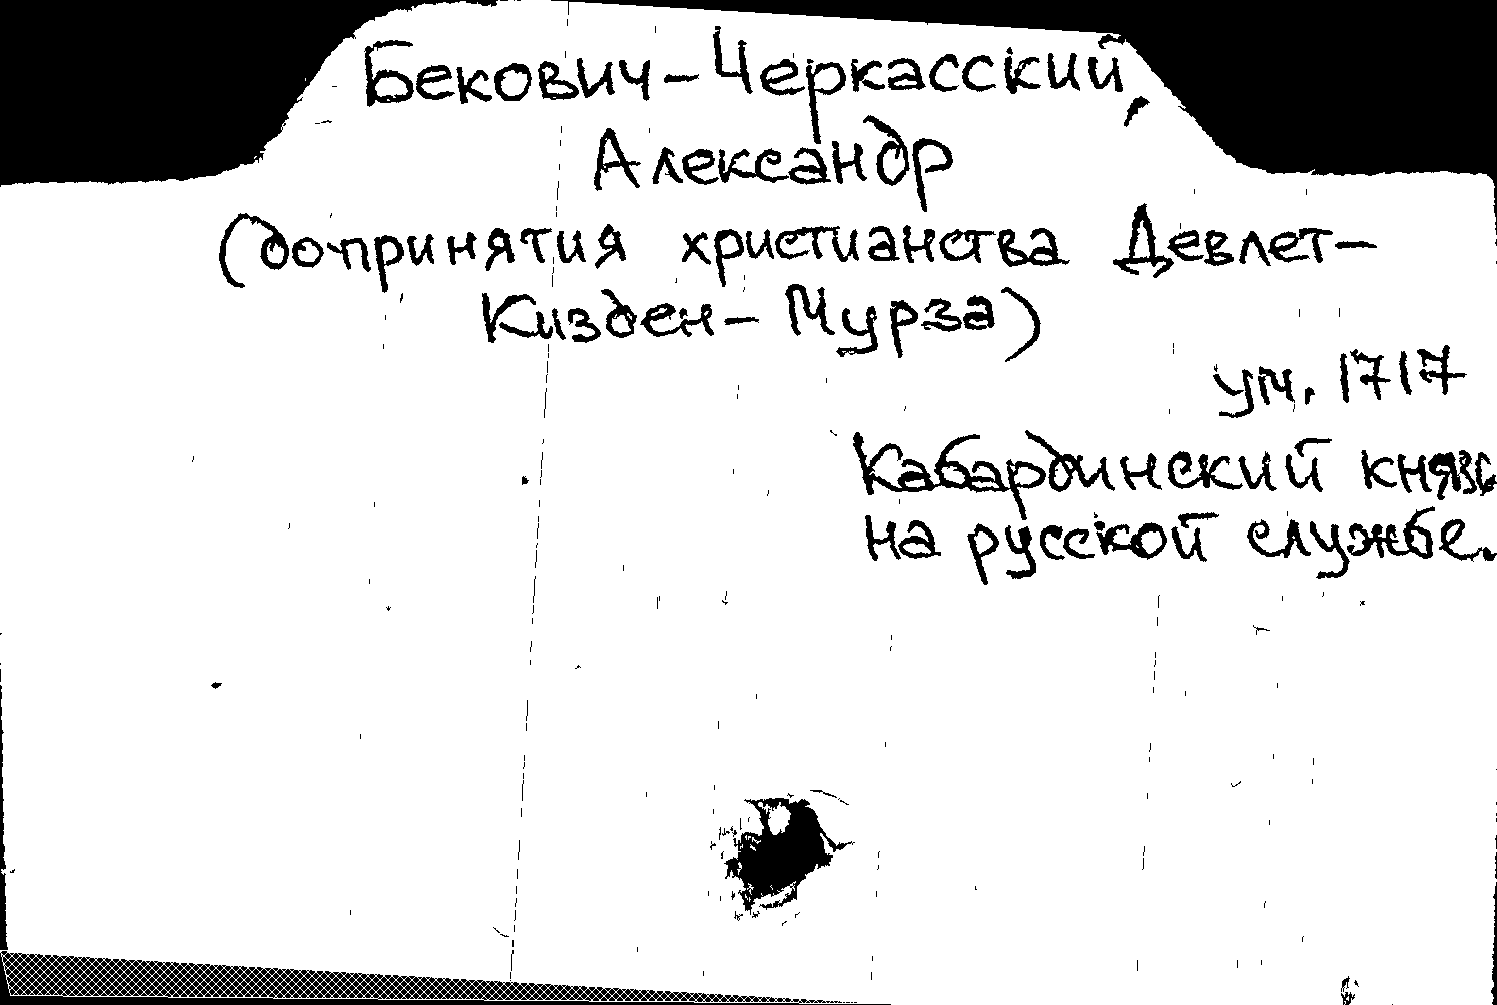 Бекович-Черкасский,
Александр
(до принятия христианства Девлет-
Кизден-Мурза)
ум. 1717
Кабардинский князь
на русской службе.